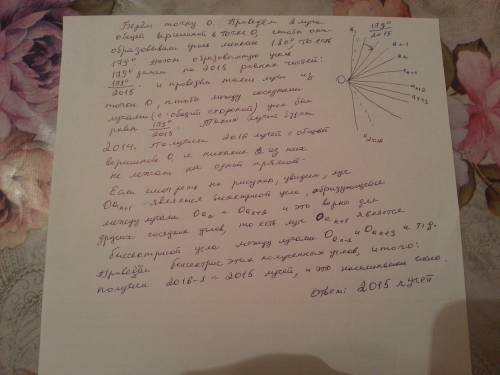 Берём точку O. Проведём 2 луча
общей вершиной в точке O, чтобы они
образовывали угол меньше 180° то есть
179°.
179° делим на 2015 равных частей:
179°/2015 и проведём такие лучи из
точки O, чтобы между соседними
лучами (с общей стороной) угол был
равен 179°/2015. Таких лучей будет
2014. Получили 2016 лучей с общей
вершиной O, и никакие 2 из них
не лежат на одной прямой.
Если смотреть на рисунок, увидим, луч
Oaₙ₊₁ - является биссектрисой угла, образующегося
между лучами Oaₙ и Oaₙ₊₂ и это верно для
других соседних углов, то есть луч Oaₙ является
биссектрисой угла между лучами Oaₙ₋₁ и и т.д.
Проведём биссектрис этих полученных углов, итого:
получим 2016-1 = 2015 лучей, и это число.
Ответ: 2015 лучей
a₁
179°/2015
aₙ₋₁
aₙ
aₙ₊₁
aₙ₊₂
aₙ₊₃
O
a₂₀₁₆